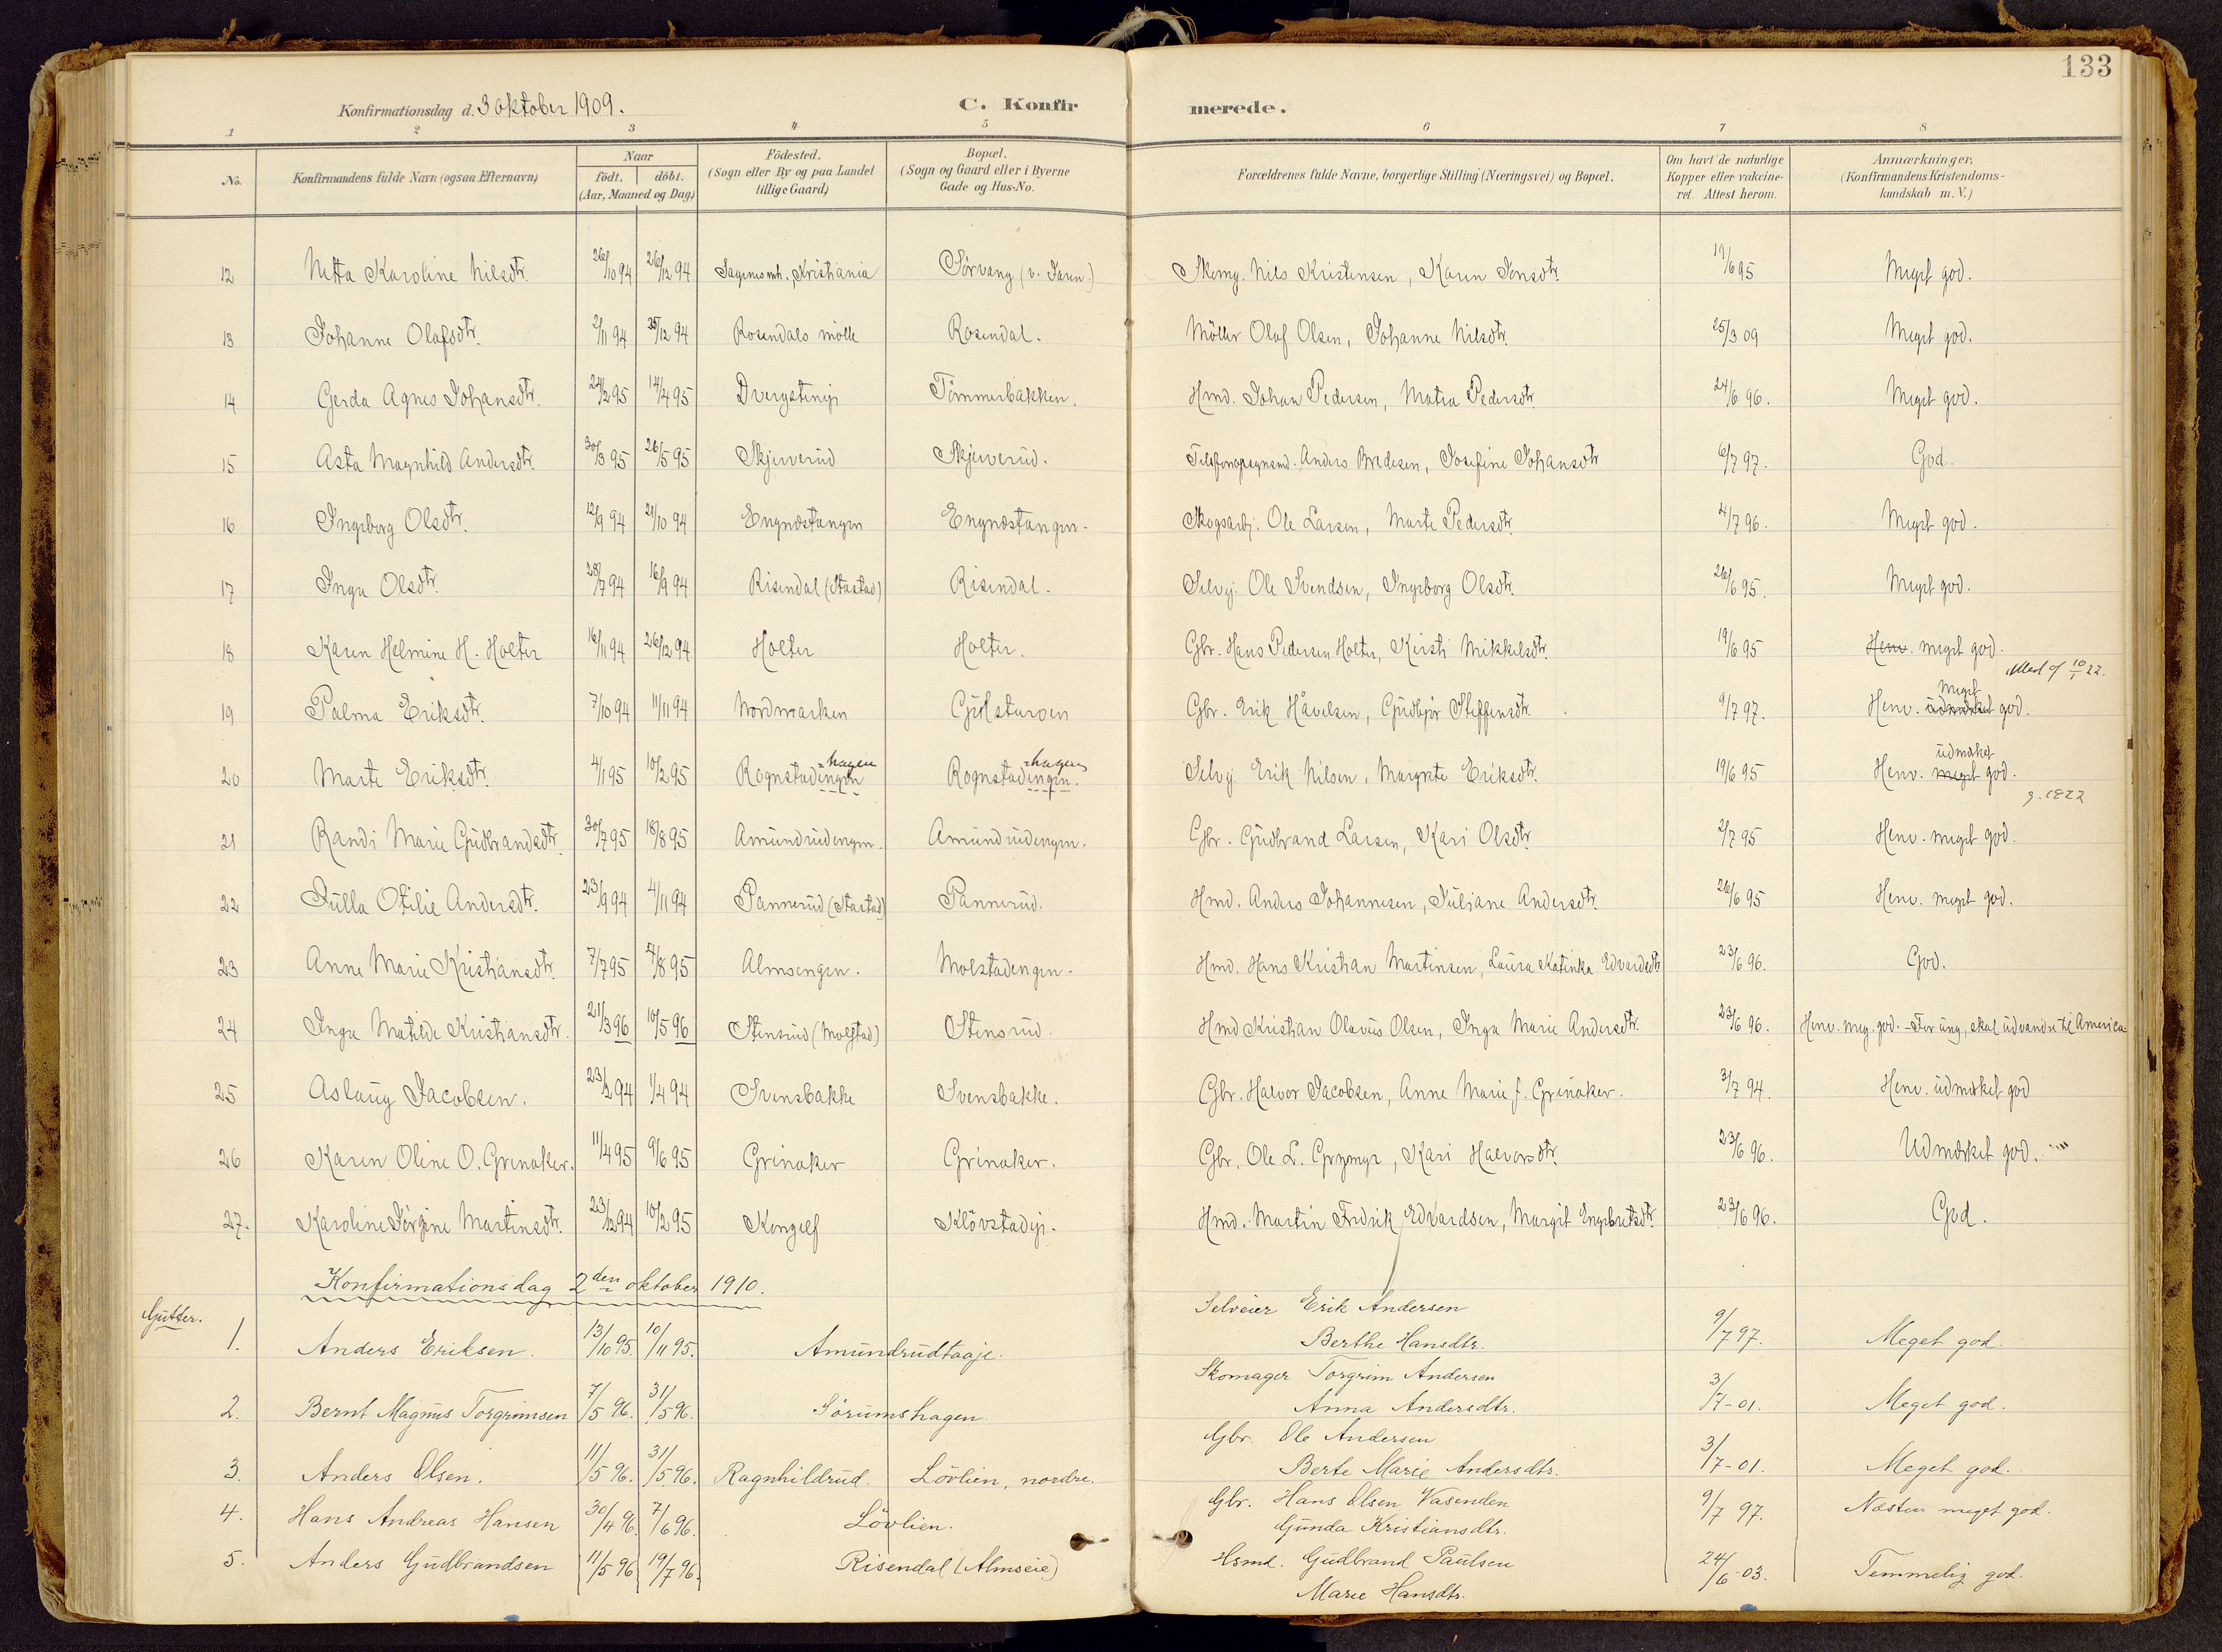 133
Konfirmationsdag d. 3 oktober 1909. C. Konfirmerede.
1 2 3 4 5 6 7 8
No. Konfirmandens fulde Navn (ogsaa Efternavn) Naar födt. döbt. (Aar, Maaned og Dag) Födested. (Sogn eller By og paa Landet tillige Gaard) Bopæl. (Sogn og Gaard eller i Byerne Gade og Hus-No. Forældrenes fulde Navne, borgerlige Stilling (Næringsvei) og Bopæl. Om havt de naturlige Kopper eller vakcineret. Attest herom. Anmærkninger. (Konfirmandens Kristendomskundskab m. V.)
12 Netta Karoline Nilsdtr. 26/10 94 26/12 94 Kristiania Sörvang Skomg. Nils Kristensen, Karen Jensdtr. 19/6 95 Meget god.
13 Johanne Olafsdtr. 2/11 94 25/12 94 Rosendals mölle Rosendal. Möller Olaf Olsen, Johanne Nilsdtr. 25/3 09 Meget god.
14 Gerda Agnes Johansdtr. 24/2 95 14/4 95 Dvergsteneje Tömmerbakken. Hmd. Johan Pedersen, Matea Pedersdtr. 24/6 96. Meget god.
15 Asta Magnhild Andersdtr. 30/3 95 26/5 95 Skjerverud Skjerverud. Telefonopsynsmd. Anders Bredesen, Josefine Johansdtr 6/7 97. God.
16 Ingeborg Olsdtr. 12/9 94 21/10 94 Engnæstangen Engnæstangen. Skogsarbj. Ole Larsen, Marte Pedersdtr. 4/7 96. Meget god.
17 Inga Olsdtr. 28/7 94 16/9 94 Risendal (Stastad) Risendal. Selvej. Ole Svendsen, Ingeborg Olsdtr. 26/6 95. Meget god.
18 Karen Helmine H. Holter 16/11 94 26/12 94 Holter Holter. Gbr. Hans Pedersen Holter, Kirsti Mikkelsdtr. 19/6 95 Henv. meget god.
10/1 22.
19 Palma Eriksdtr. 7/10 94 11/11 94 Nordmarken Gulsturoen Gbr. Erik Håvelsen, Gudbjör Steffensdtr. 9/7 97. Henv. udmærket Meget god.
20 Marte Eriksdtr. 4/1 95 10/2 95 Rognstadengen -hagen Rognstadengen. -hagen Selvej Erik Nilsen, Margrete Eriksdtr. 19/6 95 Henv. meget udmærket god.
g. 1822
21 Randi Marie Gudbrandsdtr. 30/7 95 18/8 95 Amundrudengen. Amundrudengen. Gbr. Gudbrand Larsen, Kari Olsdtr. 2/7 95 Henv. meget god.
22 Julla Otilie Andersdtr. 23/9 94 4/11 94 Pannerud (Stastad) Pannerud. Hmd. Anders Johannesen, Juliane Andersdtr. 26/6 95 Henv. meget god.
23 Anne Marie Kristiansdtr. 7/7 95 4/8 95 Almsengen. Molstadengen. Hmd. Hans Kristian Martinsen, Laura Katinka Edvardsdtr. 23/6 96. God.
24 Inga Matilde Kristiansdtr. 21/3 96 10/5 96 Stensrud (Molstad) Stensrud. Hmd Kristian Olavus Olsen, Inga Marie Andersdtr. 23/6 96. Henv. meg. god. - For ung, skal udvandre til America
25 Aslaug Jacobsen. 23/2 94 1/4 94 Svensbakke Svensbakke. Gbr. Halvor Jacobsen, Anne Marie f. Grinaker. 3/7 94. Henv. udmærket god
26 Karen Oline O. Grinaker. 11/4 95 9/6 95 Grinaker Grinaker. Gbr. Ole L. Grymyr, Kari Halvorsdtr. 23/6 96. Udmærket god.
27. Karoline Jörgine Martinsdtr. 23/12 94 10/2 95 Kongelf Klövstadej. Hmd. Martin Fredrik Edvardsen, Margit Engebretsdtr. 23/6 96. God.
Konfirmationsdag 2den oktober 1910.
Gutter.
1. Anders Eriksen. 13/10 95. 10/11 95. Amundrudtaaje. Selveier Erik Andersen
Berthe Hansdtr. 9/7 97. Meget god.
2. Bernt Magnus Torgrimsen 7/5 96. 31/5 96. Sörumshagen. Skomager Torgrim Andersen
Anna Andersdtr. 3/7-01. Meget god.
3. Anders Olsen. 11/5 96. 31/5 96. Ragnhildrud. Lövlien, nordre. Gbr. Ole Andersen
Berte Marie Andersdtr. 3/7-01. Meget god.
4. Hans Andreas Hansen 30/4 96. 7/6 96. Lövlien. Gbr. Hans Olsen Vasenden
Gunda Kristiansdtr. 9/7 97. Næsten meget god.
5. Anders Gudbrandsen 11/5 96 19/7 96. Risendal (Almseie) Hsmd. Gudbrand Paulsen
Marie Hansdtr. 24/6-03. Temmelig god.